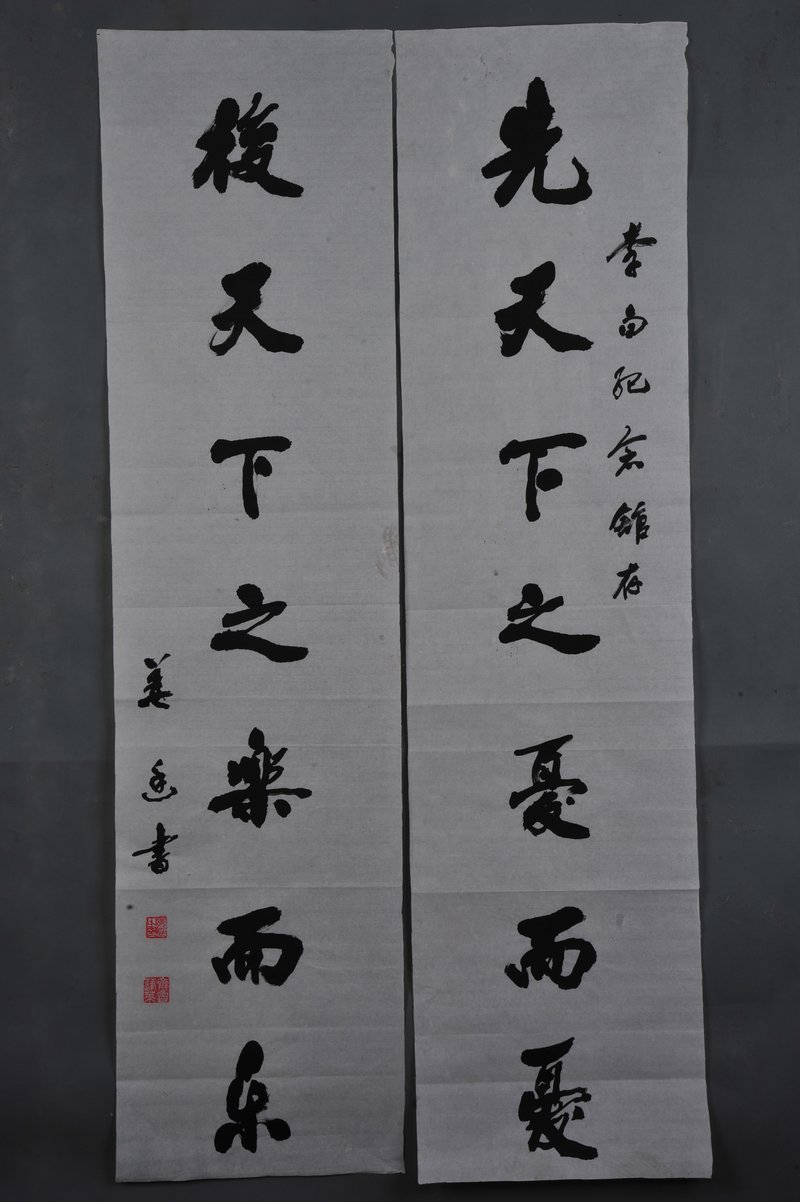 李白纪念館存
先天下之憂而憂
後天下之樂而乐
姜書